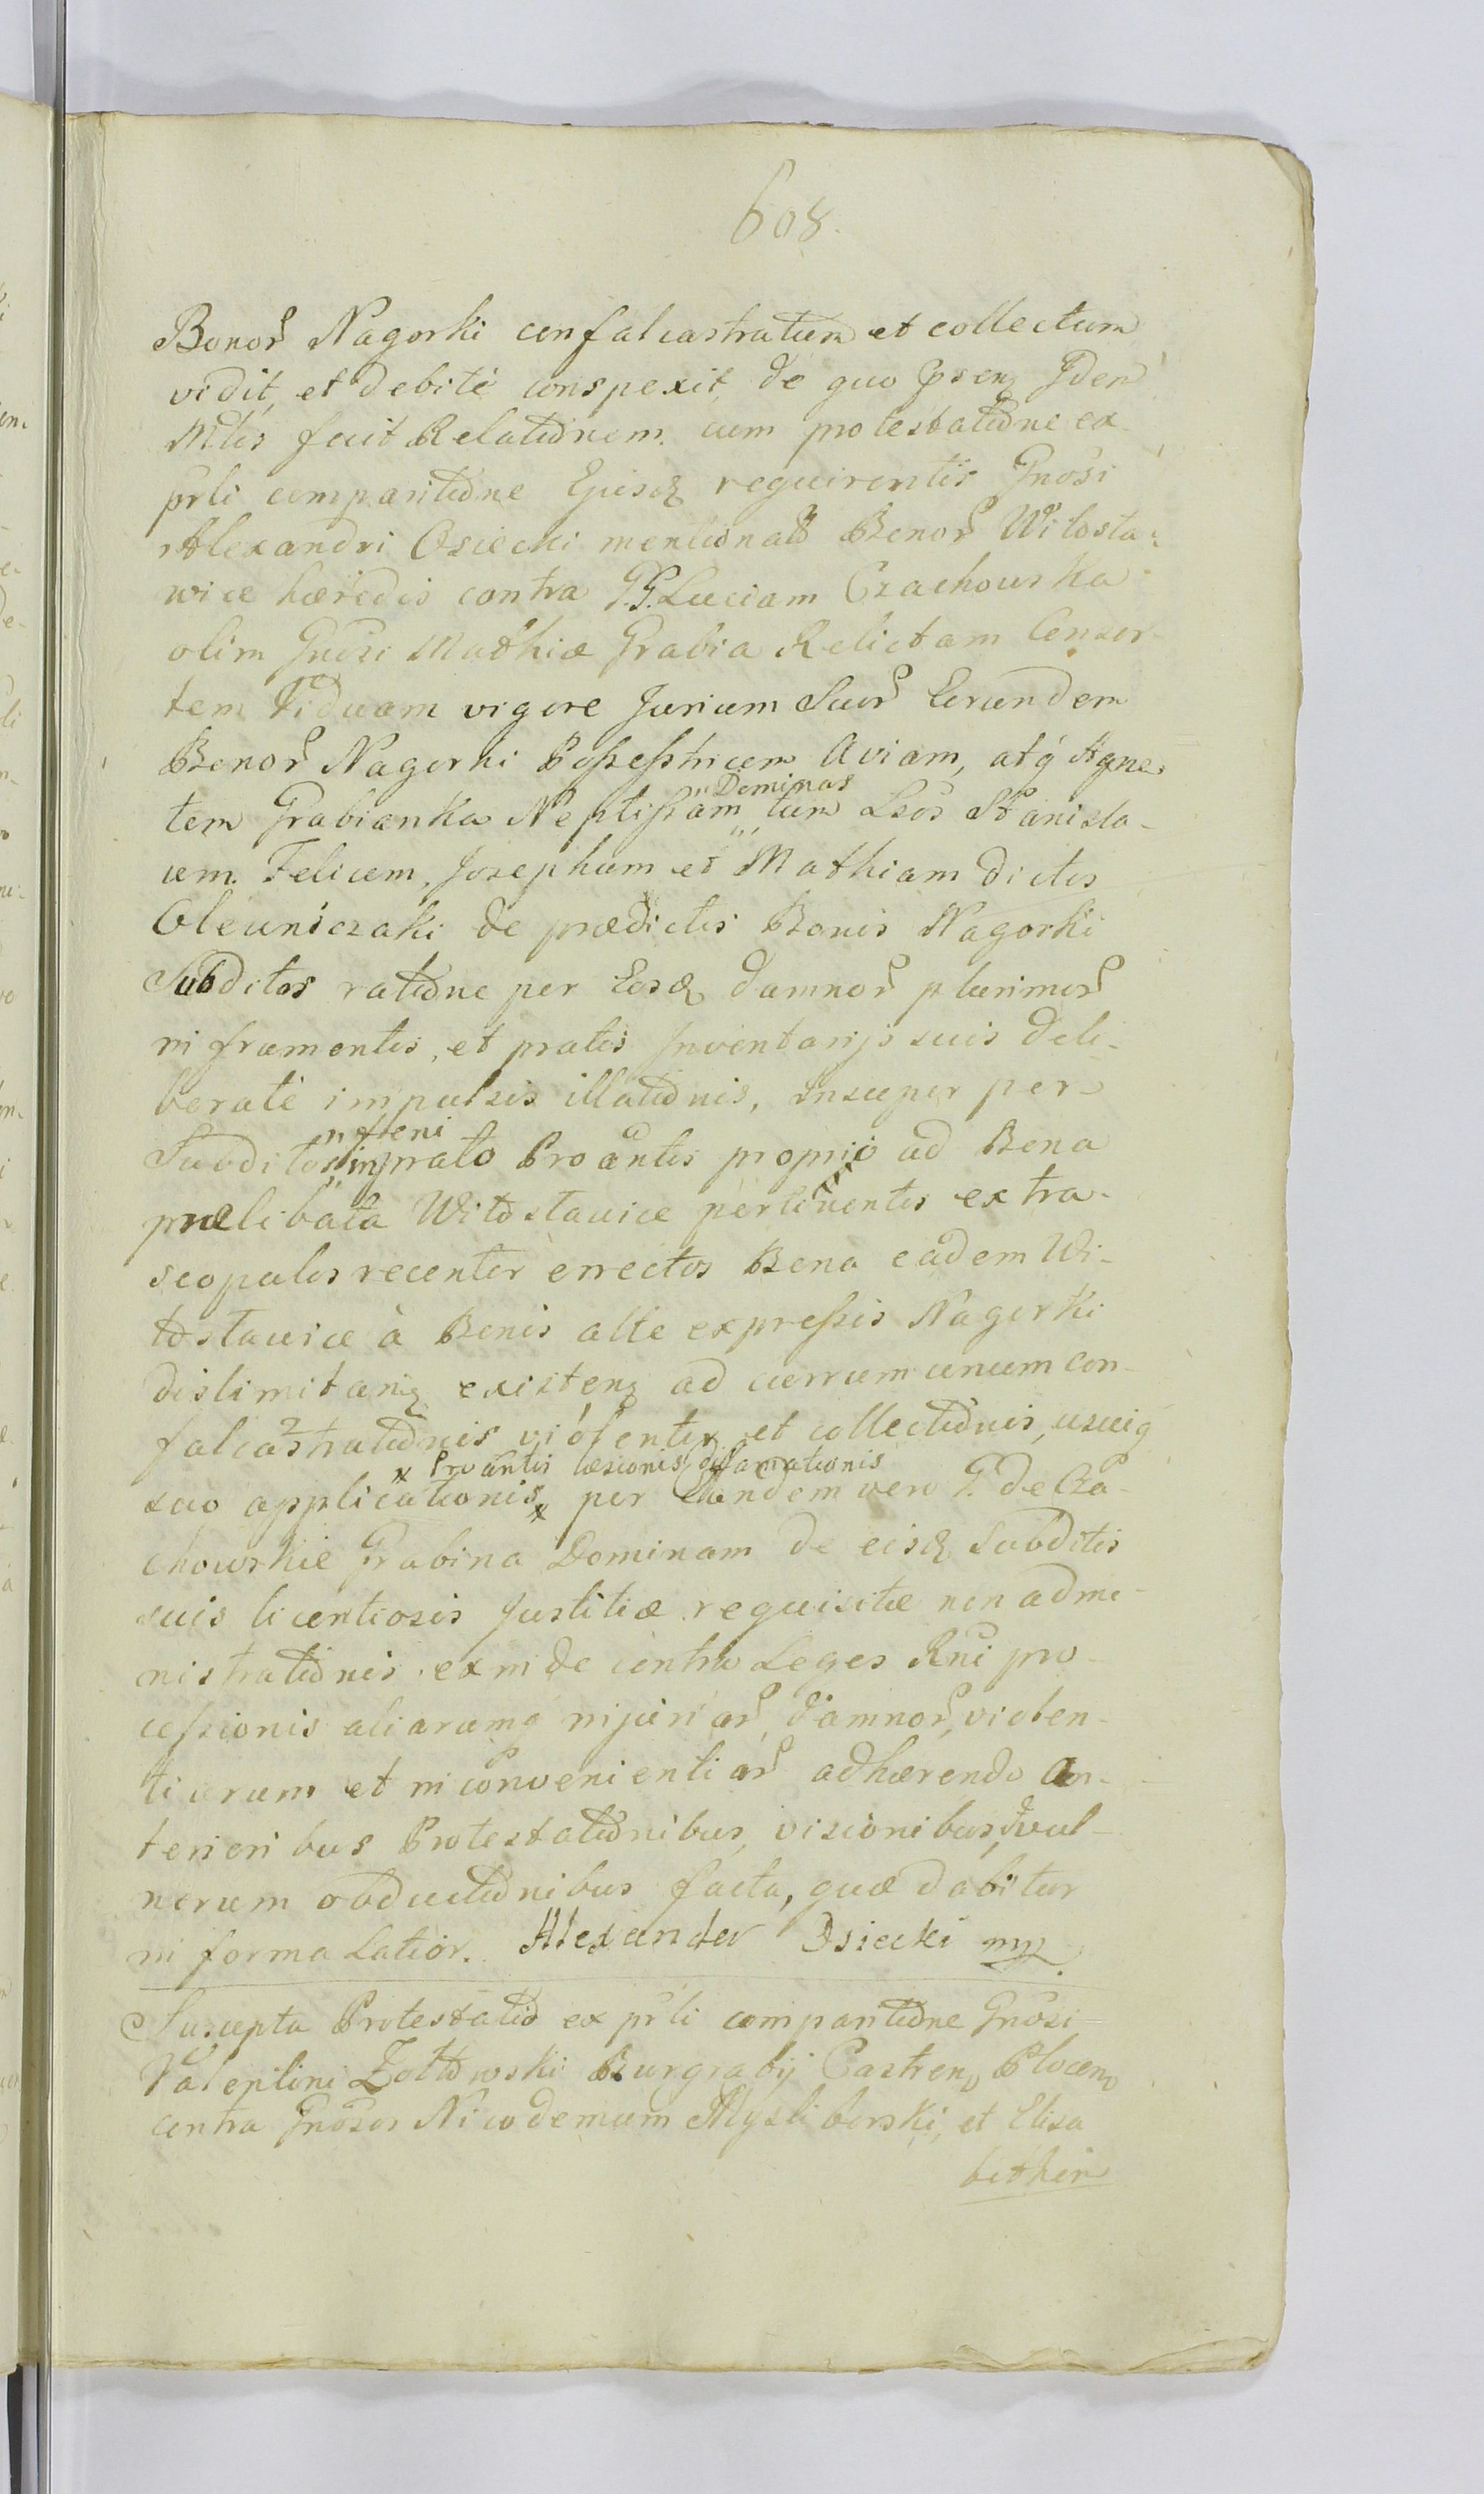 608.
Bonor Nagorki confalcastratum et collectum
vidit, et debitè conspexit, de quo Prsenq Jdem
Mtis fecit Relationem. cum protestatione ex
prli comparitione Ejusq requirentis Gnosi
Alexandri Osiecki mentionat Bonor Witosta:
wice hæredis contra G.G. Luciam Czachowska
olim Gnosi Mathiæ Grabia Relictam Consor-
tem Viduam vigore Jurium Suor Eorundem
Bonor Nagorki Possesstricem Aviam, atq Agne-
tem Grabianka Neptissam "Dominas" tum Lsos Stanisla-
um. Felicem, Josephum et Mathiam dictos
Oleuniczaki de prædictis Bonis Nagorki
Subditos ratione per Eosq damnor plurimor
in frumentis, et pratis Inventarijs suis deli-
beratè impulsis illationis, Insuper per
Subditos "in foeni" in prato Protantis proprio ad Bona
prælibata Witostawice pertinentis extra
scopulos recenter errectos Bona eadem Wi-
tostawice à Bonis alte expressis Nagorki
dislimitanq existenq ad currum unum con-
falcastrationis violenter et collectionis, usuiq
x Protantis læsionis diffamationis
suo applicationis x per Eandem vero G. de Cza-
chowskie Grabina Dominam de eisq Subditis
suis licentiosis Justitiæ requisitæ non admi-
nistrationis exinde contra Leges Rni pro-
cessionis aliarumq injuriar, damnor, violen-
tiarum et inconvenientiar adhærendo An-
terioribus Protestationibus, visionibus, vul-
nerum obductionibus facta, quæ dabitur
in forma Latior. Alexander Osiecki mp.
Suscepta Protestatio ex prli comparitione Gnosi
Valentini Zottowski Burgrabij Castren Plocen
contra Gnosos Nicodemum Mysliborski, et Elisa
betham